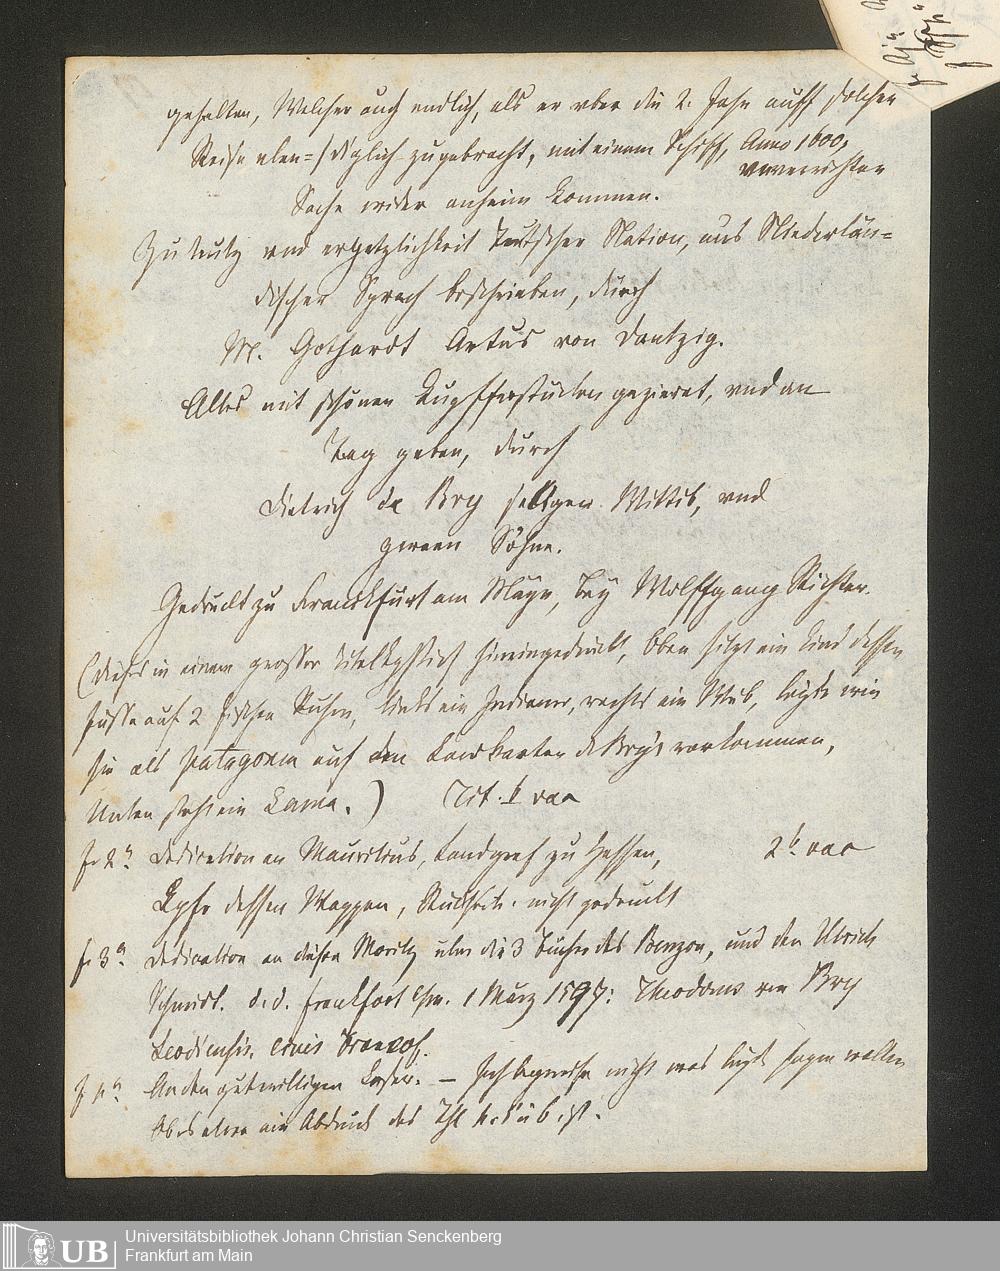 gehalten, Welcher auch endlich, als er vber die 2. Jahr auff solcher
Reise elen=/diglich zugebracht, mit einem Schiff, Anno 1600,
vnverrichter
Sache wider anheim kommen.
Zu nutz vnd ergetzlichkeit Teutscher Nation, aus Niederlän=
discher Sprach beschrieben, durch
M. Gothardt Artus von Dantzig.
Alles mit schönen Kupfferstücken gezieret, vnd an
Tag geben, durch
Dietrich de Bry seligen Wittib, vnd
zween Söhne.
Gedruckt zu Franckfurt am Mayn, bey Wolffgang Richter.
(dieses in einem grossen Titelkpfstich hineingedruckt, Oben sitzt ein Kind dessen
Füsse auf 2 Fischen Ruhen, links ein Indianer, rechts ein Weib, beyde wie
sie als Patagonen auf den Landkarten de Bry's vorkommen,
Unten steht ein Lama.) Tit. b vac
f 2a Dedication an Mauritius, Landgraf zu Hessen, 2b. vac
Kpfr dessen Wappen, Rückseite nicht gedruckt
f 3a Dedication an diesen Moritz über die 3 Bücher des Benzon, und den Ulrich
Schmidt. d. d. Frankfort 1 März 1597: Theodorus von Bry
Leodiensis, civis Francof.
f 4a An den gutwilligen Leser. — Ich begreife nicht was beyde sagen wollen
Ob es etwa ein Abdruck des Thl 4. 5 u 6 ist.
Universitätsbibliothek Johann Christian Senckenberg
Frankfurt am Main
UB